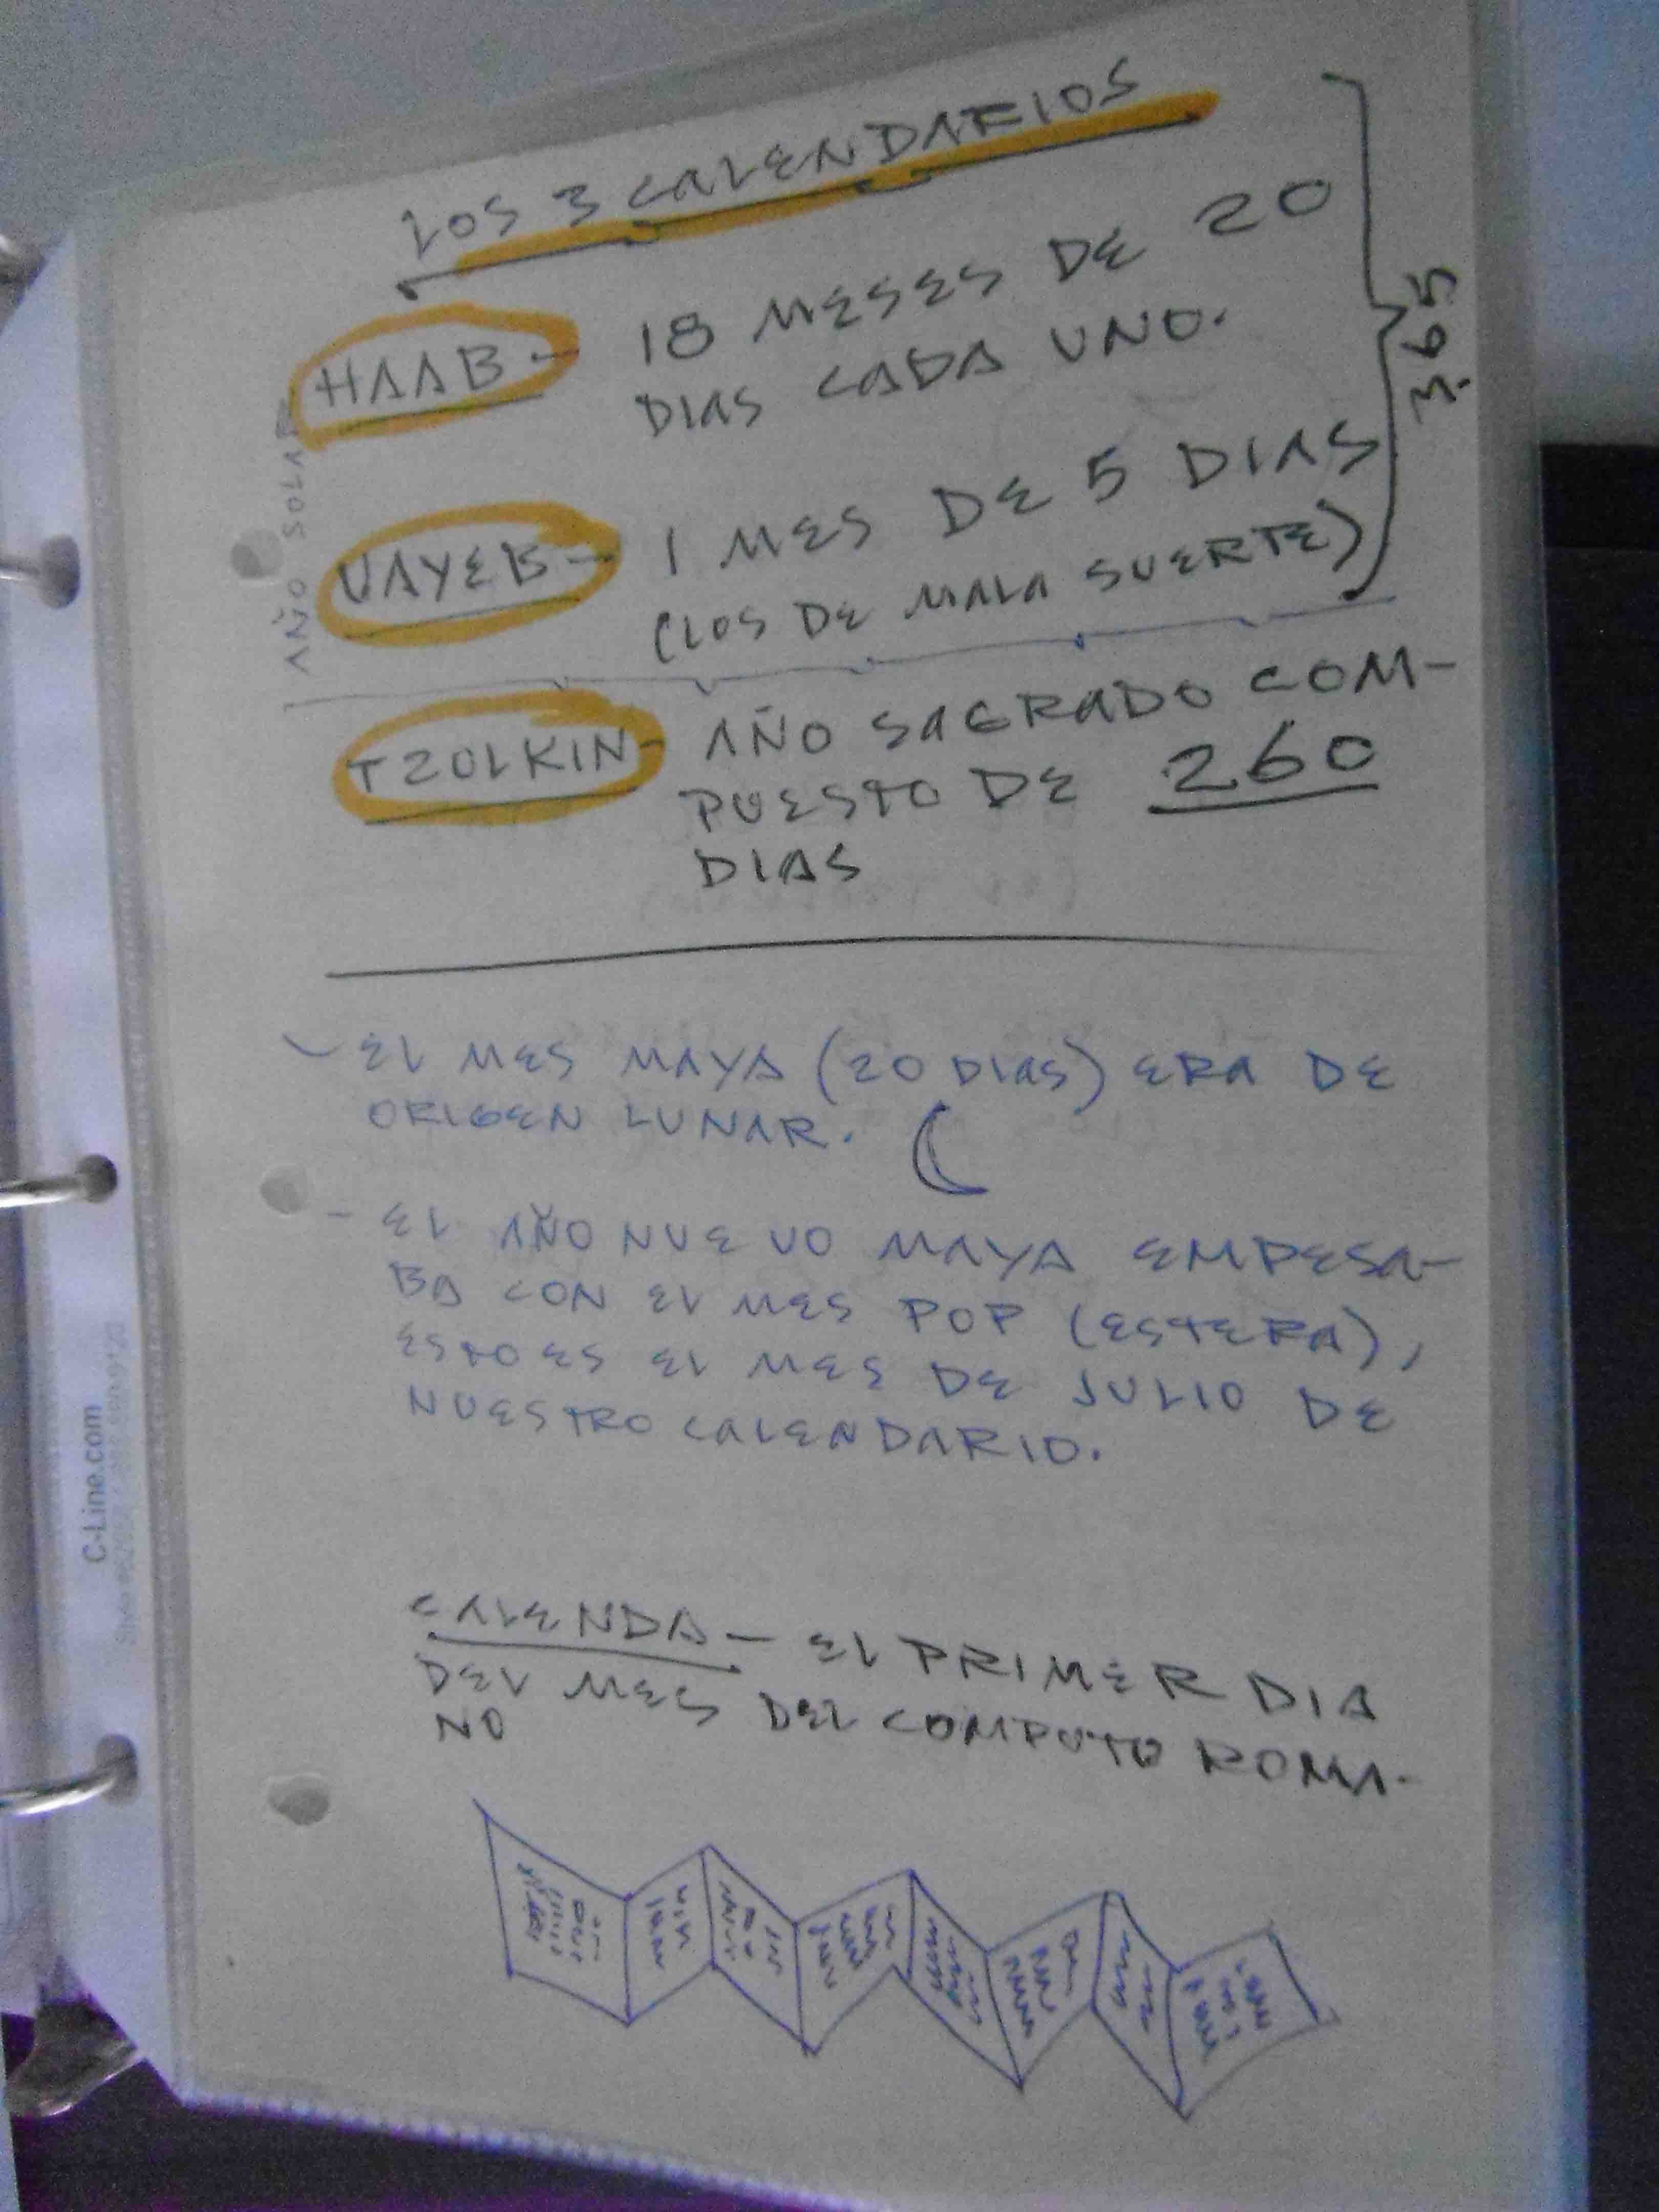 LOS 3 CALENDARIOS
HAAB - 18 MESES DE 20
DIAS CADA UNO.
UAYEB - 1 MES DE 5 DIAS
(LOS DE MALA SUERTE)
365
AÑO SOLAR
TZOLKIN - AÑO SAGRADO COM-
PUESTO DE 260
DIAS
- EL MES MAYA (20 DIAS) ERA DE
ORIGEN LUNAR.
- EL AÑO NUEVO MAYA EMPESA-
BA CON EL MES POP (ESTERA),
ESTO ES EL MES DE JULIO DE
NUESTRO CALENDARIO.
CALENDA - EL PRIMER DIA
DEL MES DEL COMPUTO ROMA-
NO
C-Line.com